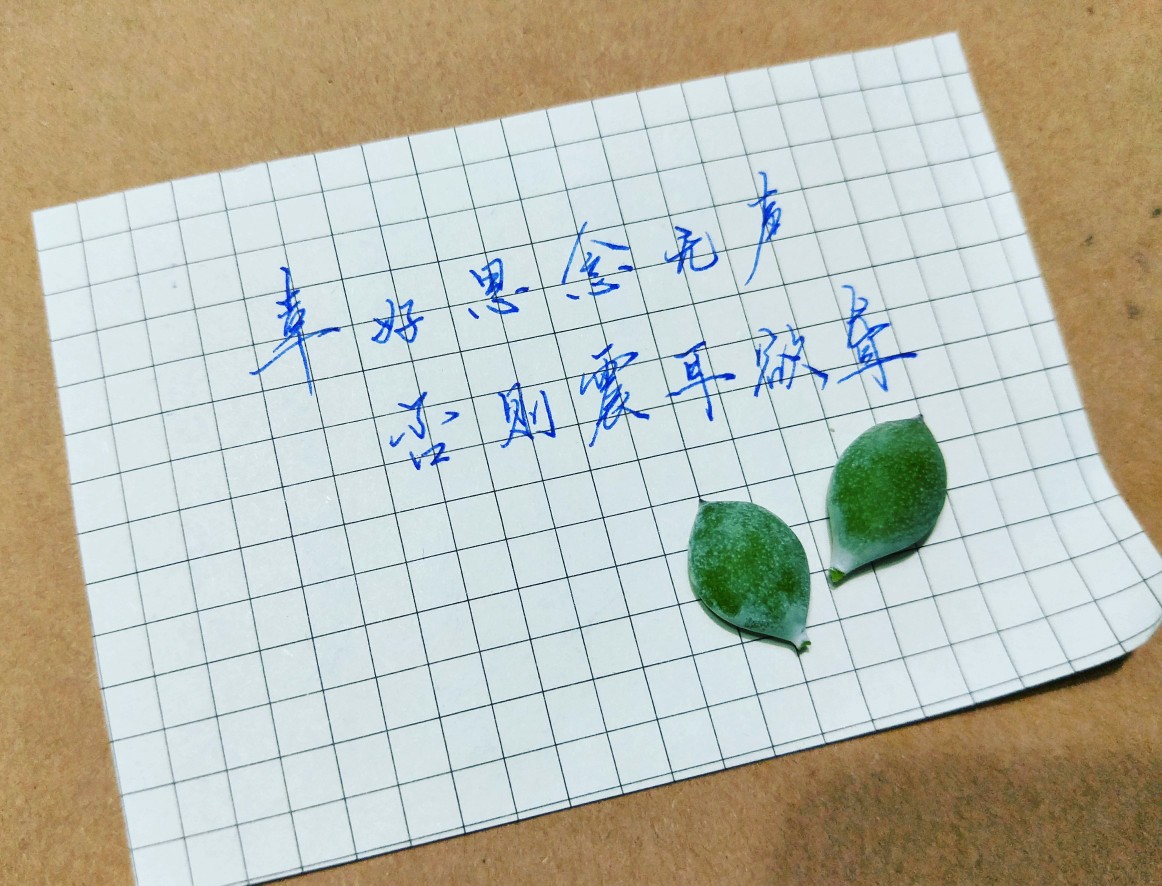 幸好思念无声
否則震耳欲聋